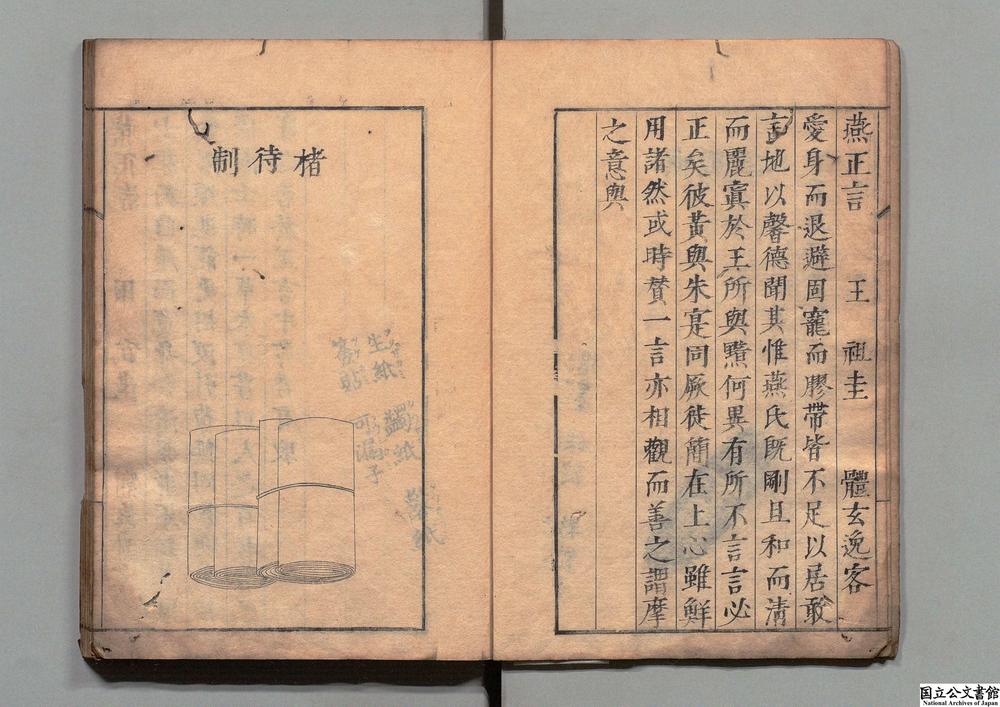 燕正言 王 祖圭 體玄逸客
愛身而退避固寵而膠帶皆不足以居敢
言地以馨德聞其惟燕氏既剛且和而清
而麗寘於王所與㸃何異有所不言言必
正矣彼黃與朱寔同厥徒蕳在上心雖鮮
用諸然或時賛一言亦相觀而善之謂摩
之意與
楮待制
生紙
蠲紙
國立公文書館
National Archives of Japan